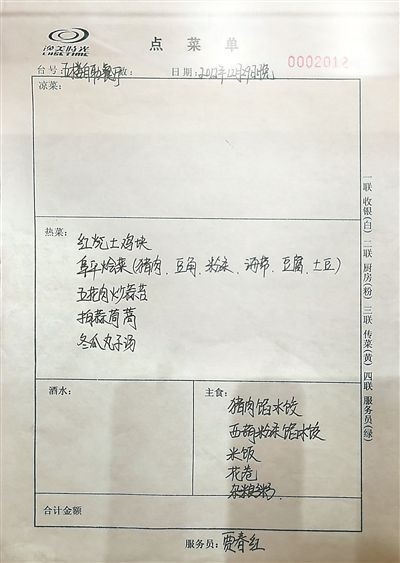 逸美时光
LUSETIME
点菜单
0002012
台号:五楼自助餐厅 人数: 日期:2012年12月29日晚
凉菜:
热菜:
红烧土鸡块
阜平烩菜(猪肉、豆角、粉条、海带、豆腐、土豆)
五花肉炒蒜苔
拍蒜茼蒿
冬瓜丸子汤
酒水:
主食:
猪肉馅水饺
西葫粉条馅水饺
米饭
花卷
杂粮粥
合计金额
服务员:贾春红
一联 收银(白) 二联 厨房(粉) 三联 传菜(黄) 四联 服务员(绿)